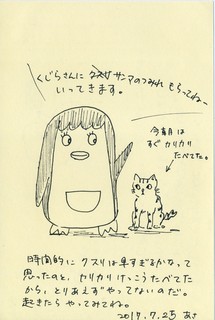 くじらさんに サンマのつみれ もらってねー
いってきます。
今朝は
すぐ カリカリ
たべてた。
時間的に クスリは早すぎるかなって
思ったのと、カリカリ けっこう たべてた
から、とりあえず やってないのだ。
起きたら やってみてね。
2017.7.25 あさ